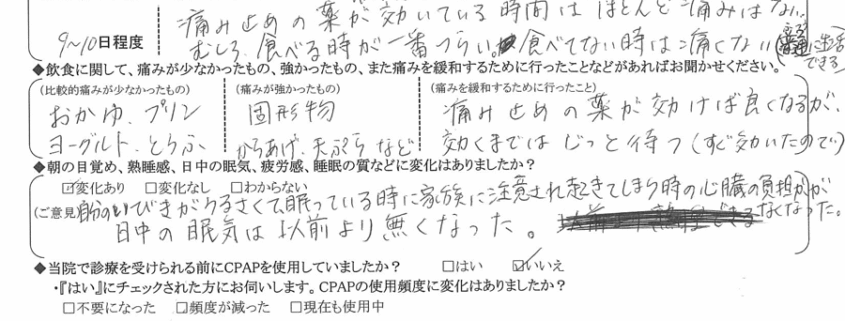 痛み止めの薬が効いている時間はほとんど痛みはない。
9～10日程度 むしろ、食べる時が一番つらい。食べてない時は痛くない(普通に生活できる)
◆飲食に関して、痛みが少なかったもの、強かったもの、また痛みを緩和するために行ったことなどがあればお聞かせください。
(比較的痛みが少なかったもの) (痛みが強かったもの) (痛みを緩和するために行ったこと)
おかゆ、プリン 固形物 痛み止めの薬が効けば良くなるが、
ヨーグルト、とうふ からあげ、天ぷらなど 効くまではじっと待つ(すぐ効いたので)
◆朝の目覚め、熟睡感、日中の眠気、疲労感、睡眠の質などに変化はありましたか?
☑変化あり □変化なし □わからない
(ご意見) 自分のいびきがうるさくて、眠っている時に家族に注意され起きてしまう時の心臓の負担がなくなった。
日中の眠気は以前より無くなった。
◆当院で診療を受けられる前にCPAPを使用していましたか? □はい ☑いいえ
・『はい』にチェックされた方にお伺いします。CPAPの使用頻度に変化はありましたか?
□不要になった □頻度が減った □現在も使用中